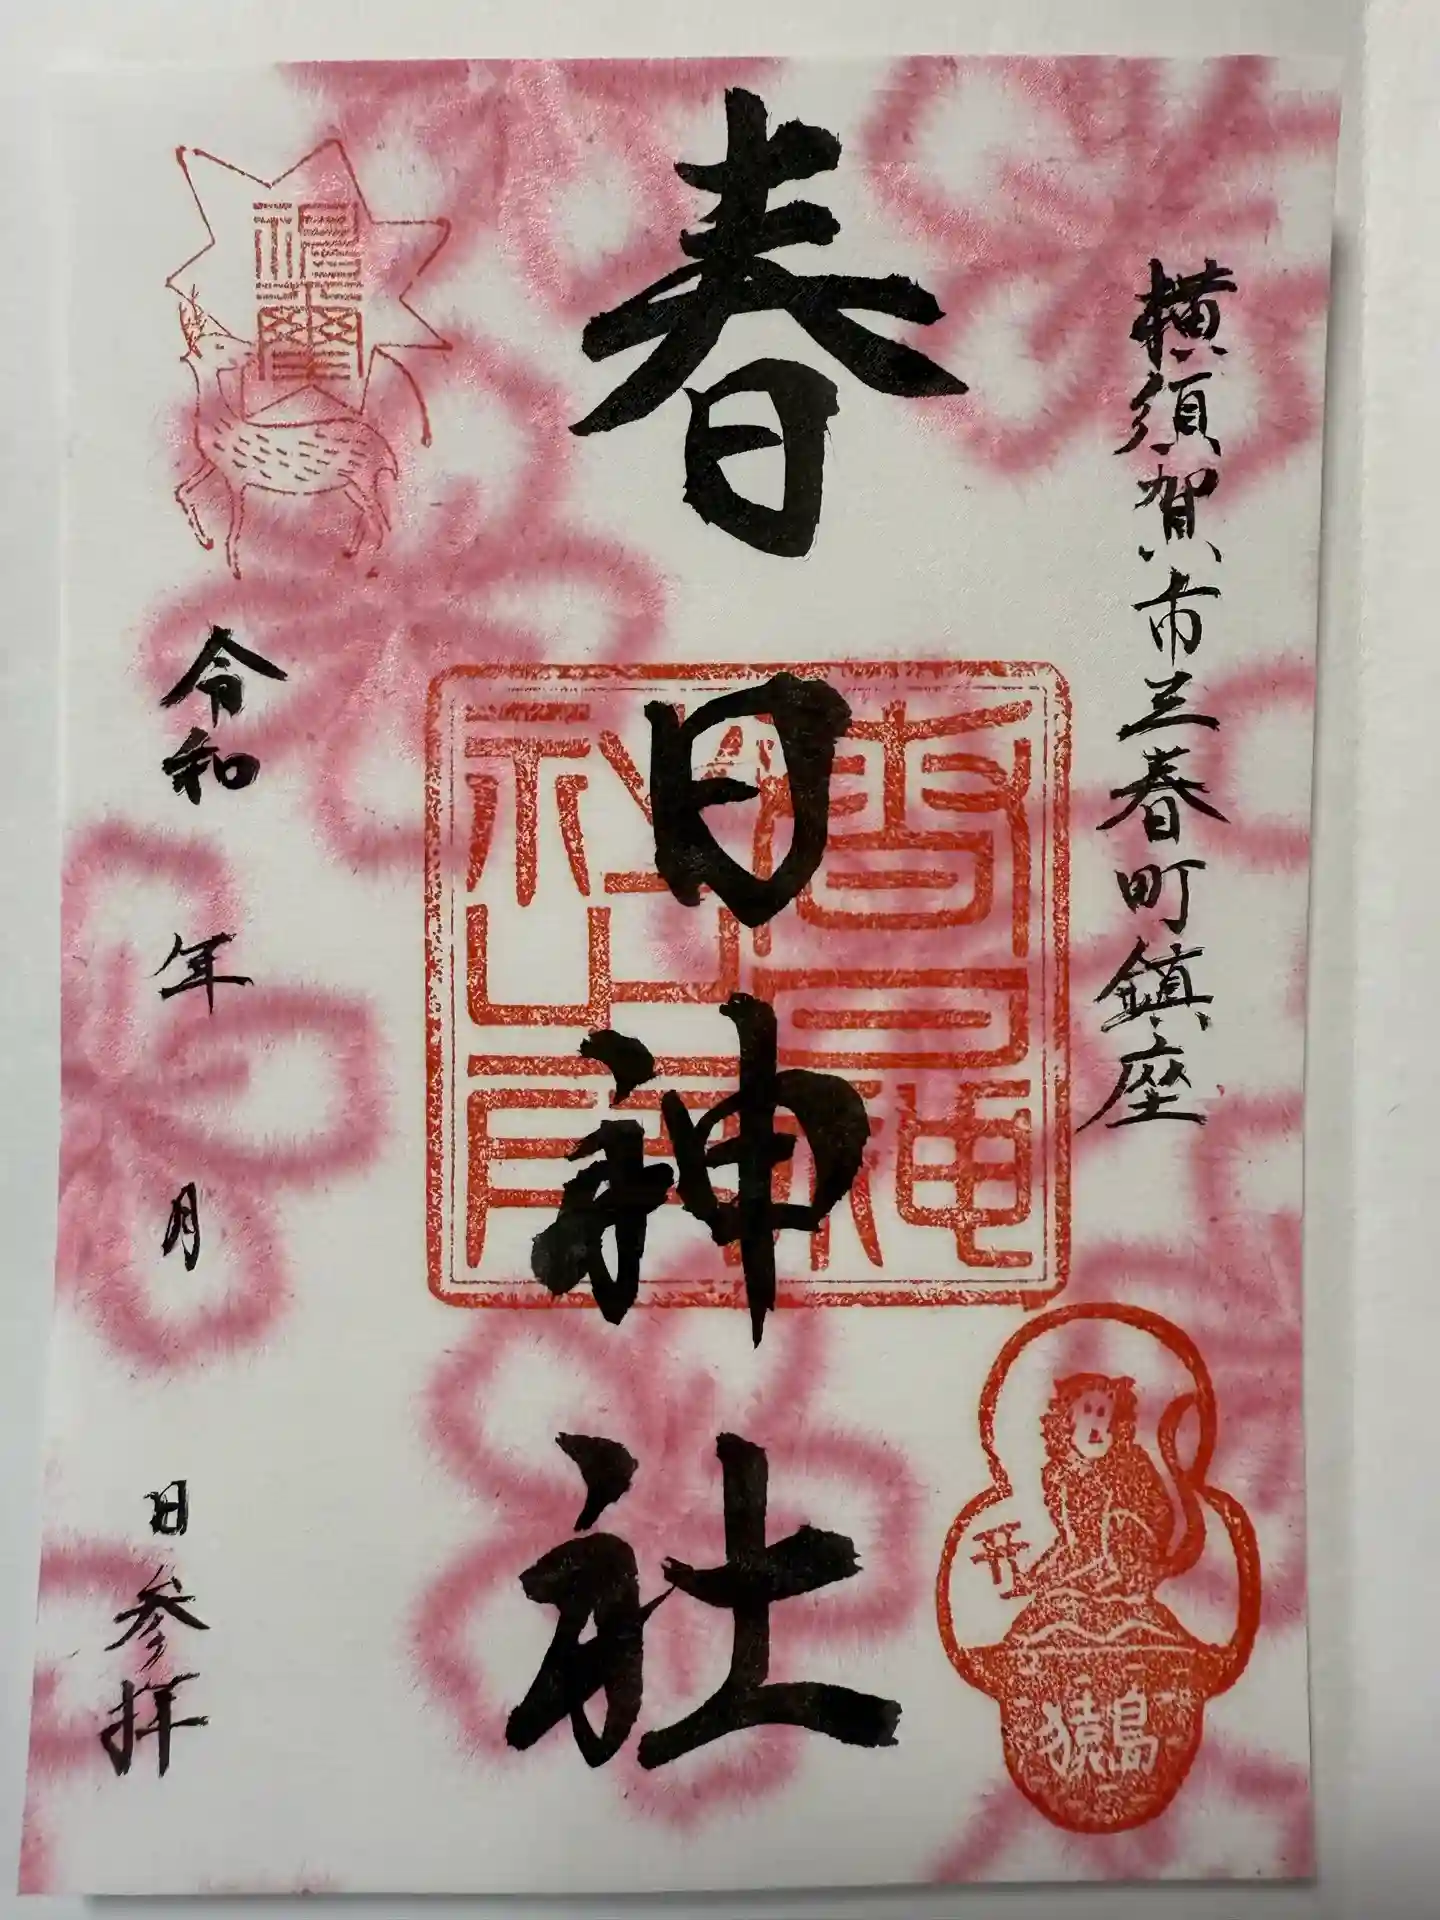 横須賀市三春町鎮座
春日神社
猿島
令和 年 月 日参拝